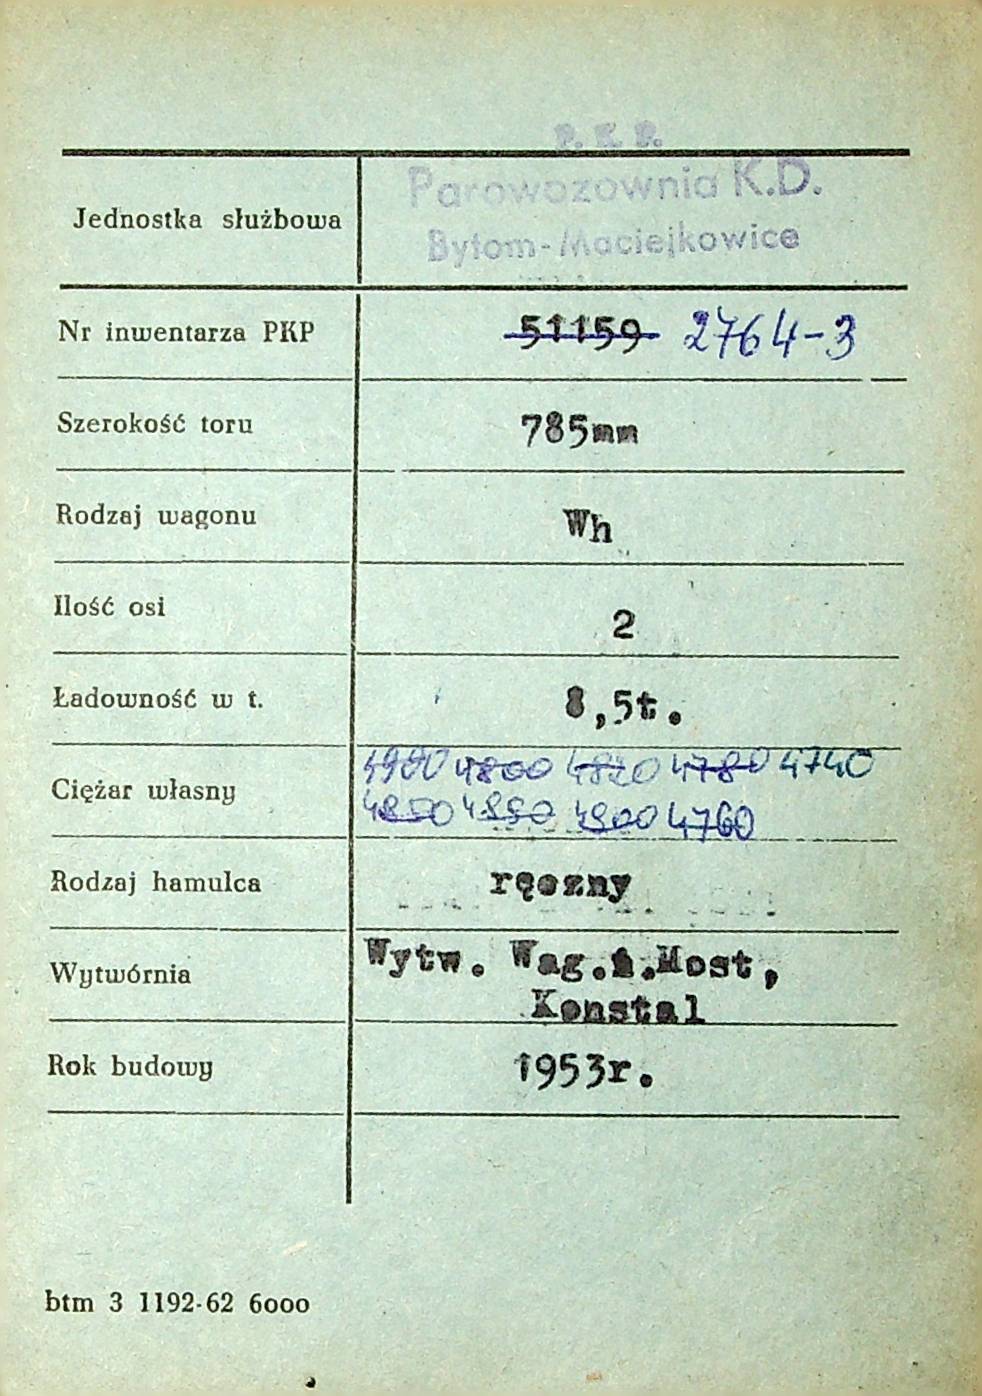 P. K. P.
Parowozownia K.D.
Bytom-Maciejkowice
Jednostka służbowa
Nr inwentarza PKP 51159 2764-3
Szerokość toru 785mm
Rodzaj wagonu Wh
Ilość osi 2
Ładowność w t. 8,5t.
4900 4800 4820 4780 4740
Ciężar własny
4850 4850 4900 4760
Rodzaj hamulca ręczny
Wytwórnia Wytw. Wag.i.Most,
Konstal
Rok budowy 1953r.
btm 3 1192-62 6000